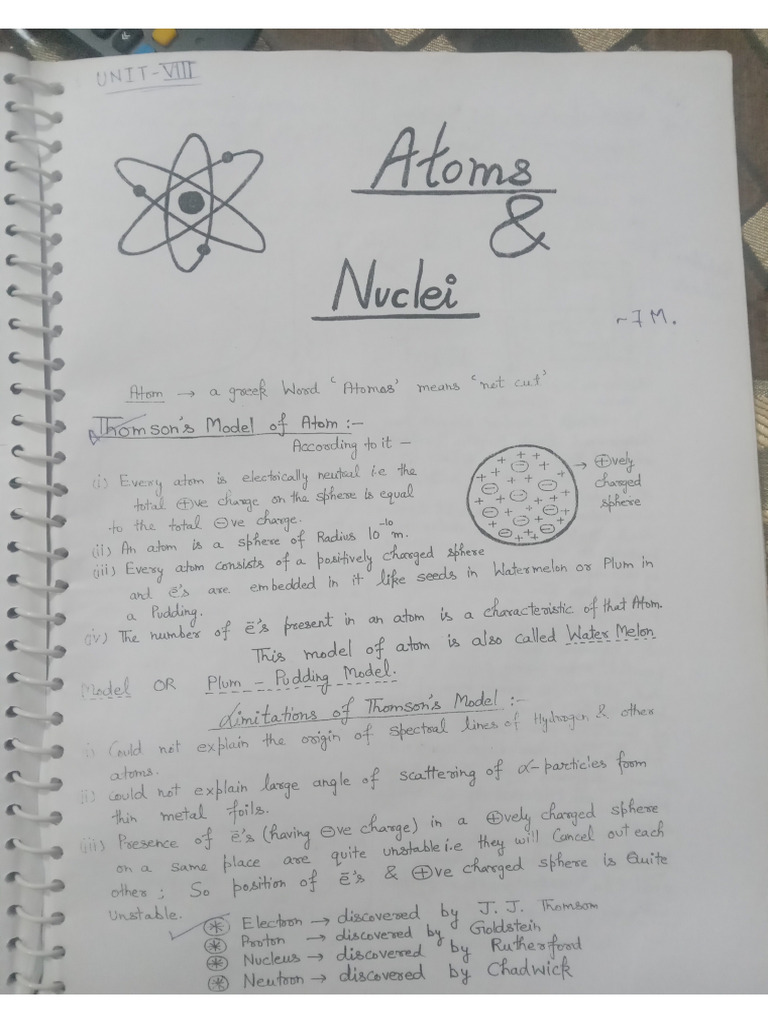 UNIT-VIII
Atoms
&
Nuclei
~7 M.
Atom → a greek Word 'Atomos' means 'not cut'
Thomson's Model of Atom :-
According to it -
(i) Every atom is electrically neutral i.e the
total ⊕ve charge on the sphere is equal
to the total ⊖ve charge.
(ii) An atom is a sphere of Radius 10⁻¹⁰ m.
→ ⊕vely
charged
sphere
(iii) Every atom consists of a positively charged sphere
and ē's are embedded in it like seeds in Watermelon or Plum in
a Pudding.
(iv) The number of ē's present in an atom is a characteristic of that Atom.
This model of atom is also called Water Melon
Model OR Plum - Pudding Model.
Limitations of Thomson's Model :-
i) Could not explain the origin of spectral lines of Hydrogen & other
atoms.
(ii) Could not explain large angle of scattering of α-particles form
thin metal foils.
(iii) Presence of ē's (having ⊖ve charge) in a ⊕vely charged sphere
on a same place are quite unstable i.e they will Cancel out each
other ; So position of ē's & ⊕ve charged sphere is Quite
Unstable.
✓ ⊛ Electron → discovered by J. J. Thomson
⊛ Proton → discovered by Goldstein
⊛ Nucleus → discovered by Rutherford
⊛ Neutron → discovered by Chadwick